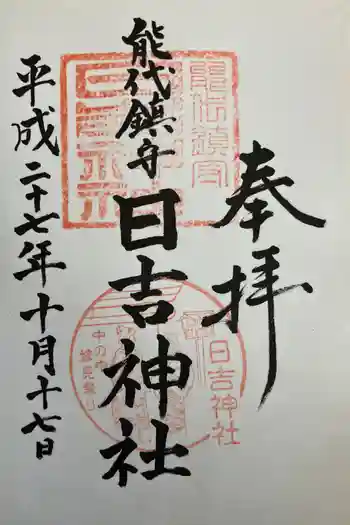 奉拝
能代鎮守
日吉神社
平成二十七年十月十七日
能代鎮守
日吉神社